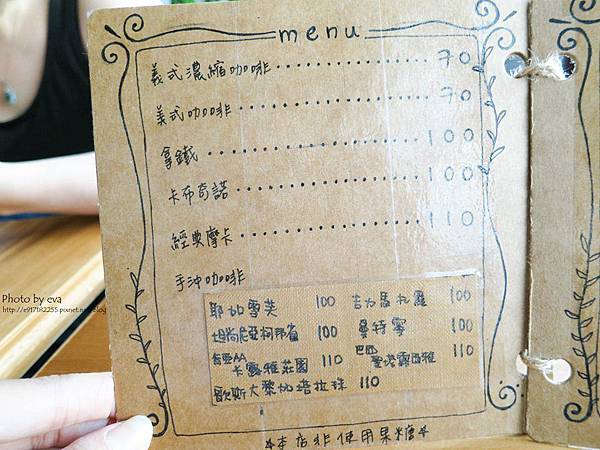 menu
義式濃縮咖啡 70
美式咖啡 70
拿鐵 100
卡布奇諾 100
經典摩卡 110
手沖咖啡
耶加雪芙 100 吉力馬札羅 100
坦尚尼亞柯邦省 100 曼特寧 100
肯亞AA 卡羅雅莊園 110 巴西 聖塔露西雅 110
歐斯大黎加塔拉珠 110
本店非使用果糖
Photo by eva
http://e917182255.pixnet.net/blog